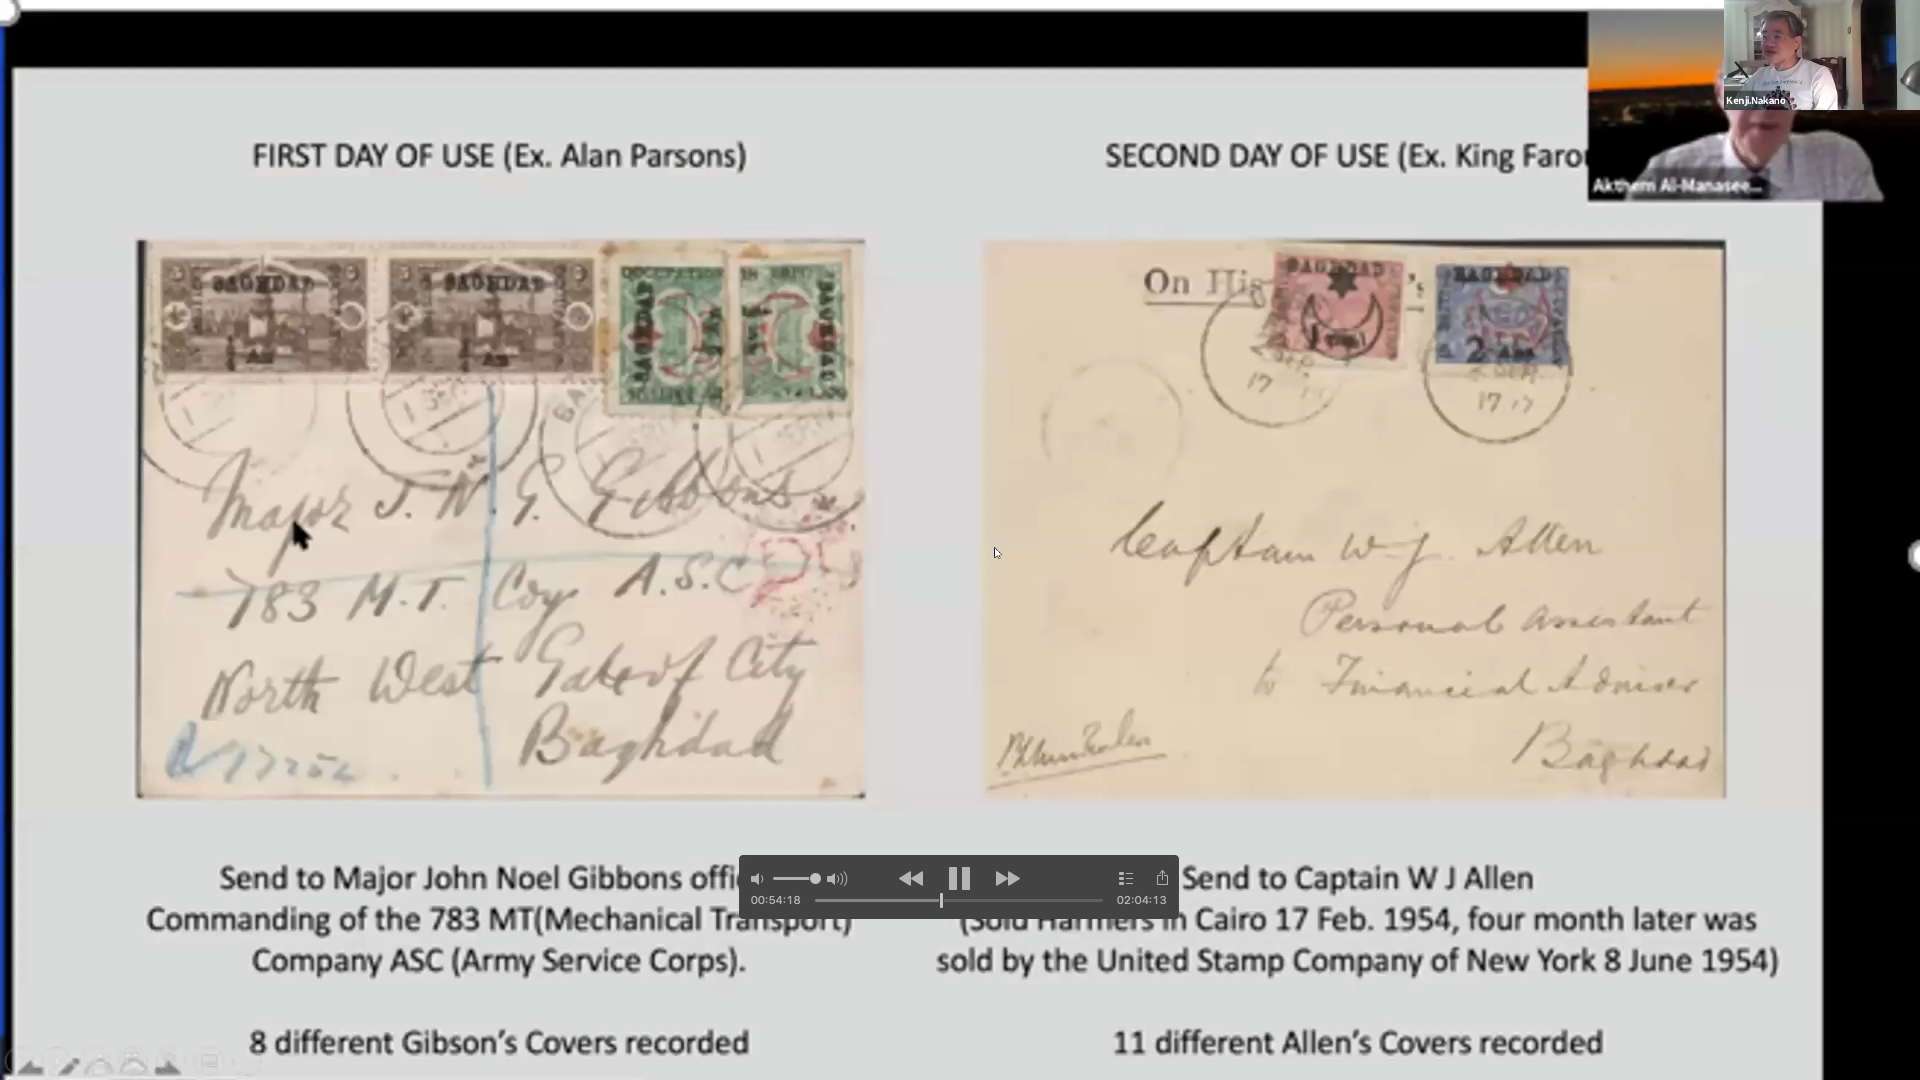 FIRST DAY OF USE (Ex. Alan Parsons)
SECOND DAY OF USE (Ex. King Farou
Kenji.Nakano
Akthem Al-Manasee...
5 BAGHDAD 5
5 BAGHDAD 5
BAGHDAD
BAGHDAD
1 SEP
Major J. N G. Gibbons
783 M.T. Coy. A.S.C
North West Gate of City
Baghdad
On His
's
BAGHDAD
BAGHDAD
2 SEP.
17
2 SEP.
17 17
Captain W. J. Allen
Personal Assistant
to Financial Adviser
Baghdad
Send to Major John Noel Gibbons offi
Commanding of the 783 MT(Mechanical Transport)
Company ASC (Army Service Corps).
8 different Gibson's Covers recorded
Send to Captain W J Allen
(Sold Harmers in Cairo 17 Feb. 1954, four month later was
sold by the United Stamp Company of New York 8 June 1954)
11 different Allen's Covers recorded
00:54:18
02:04:13